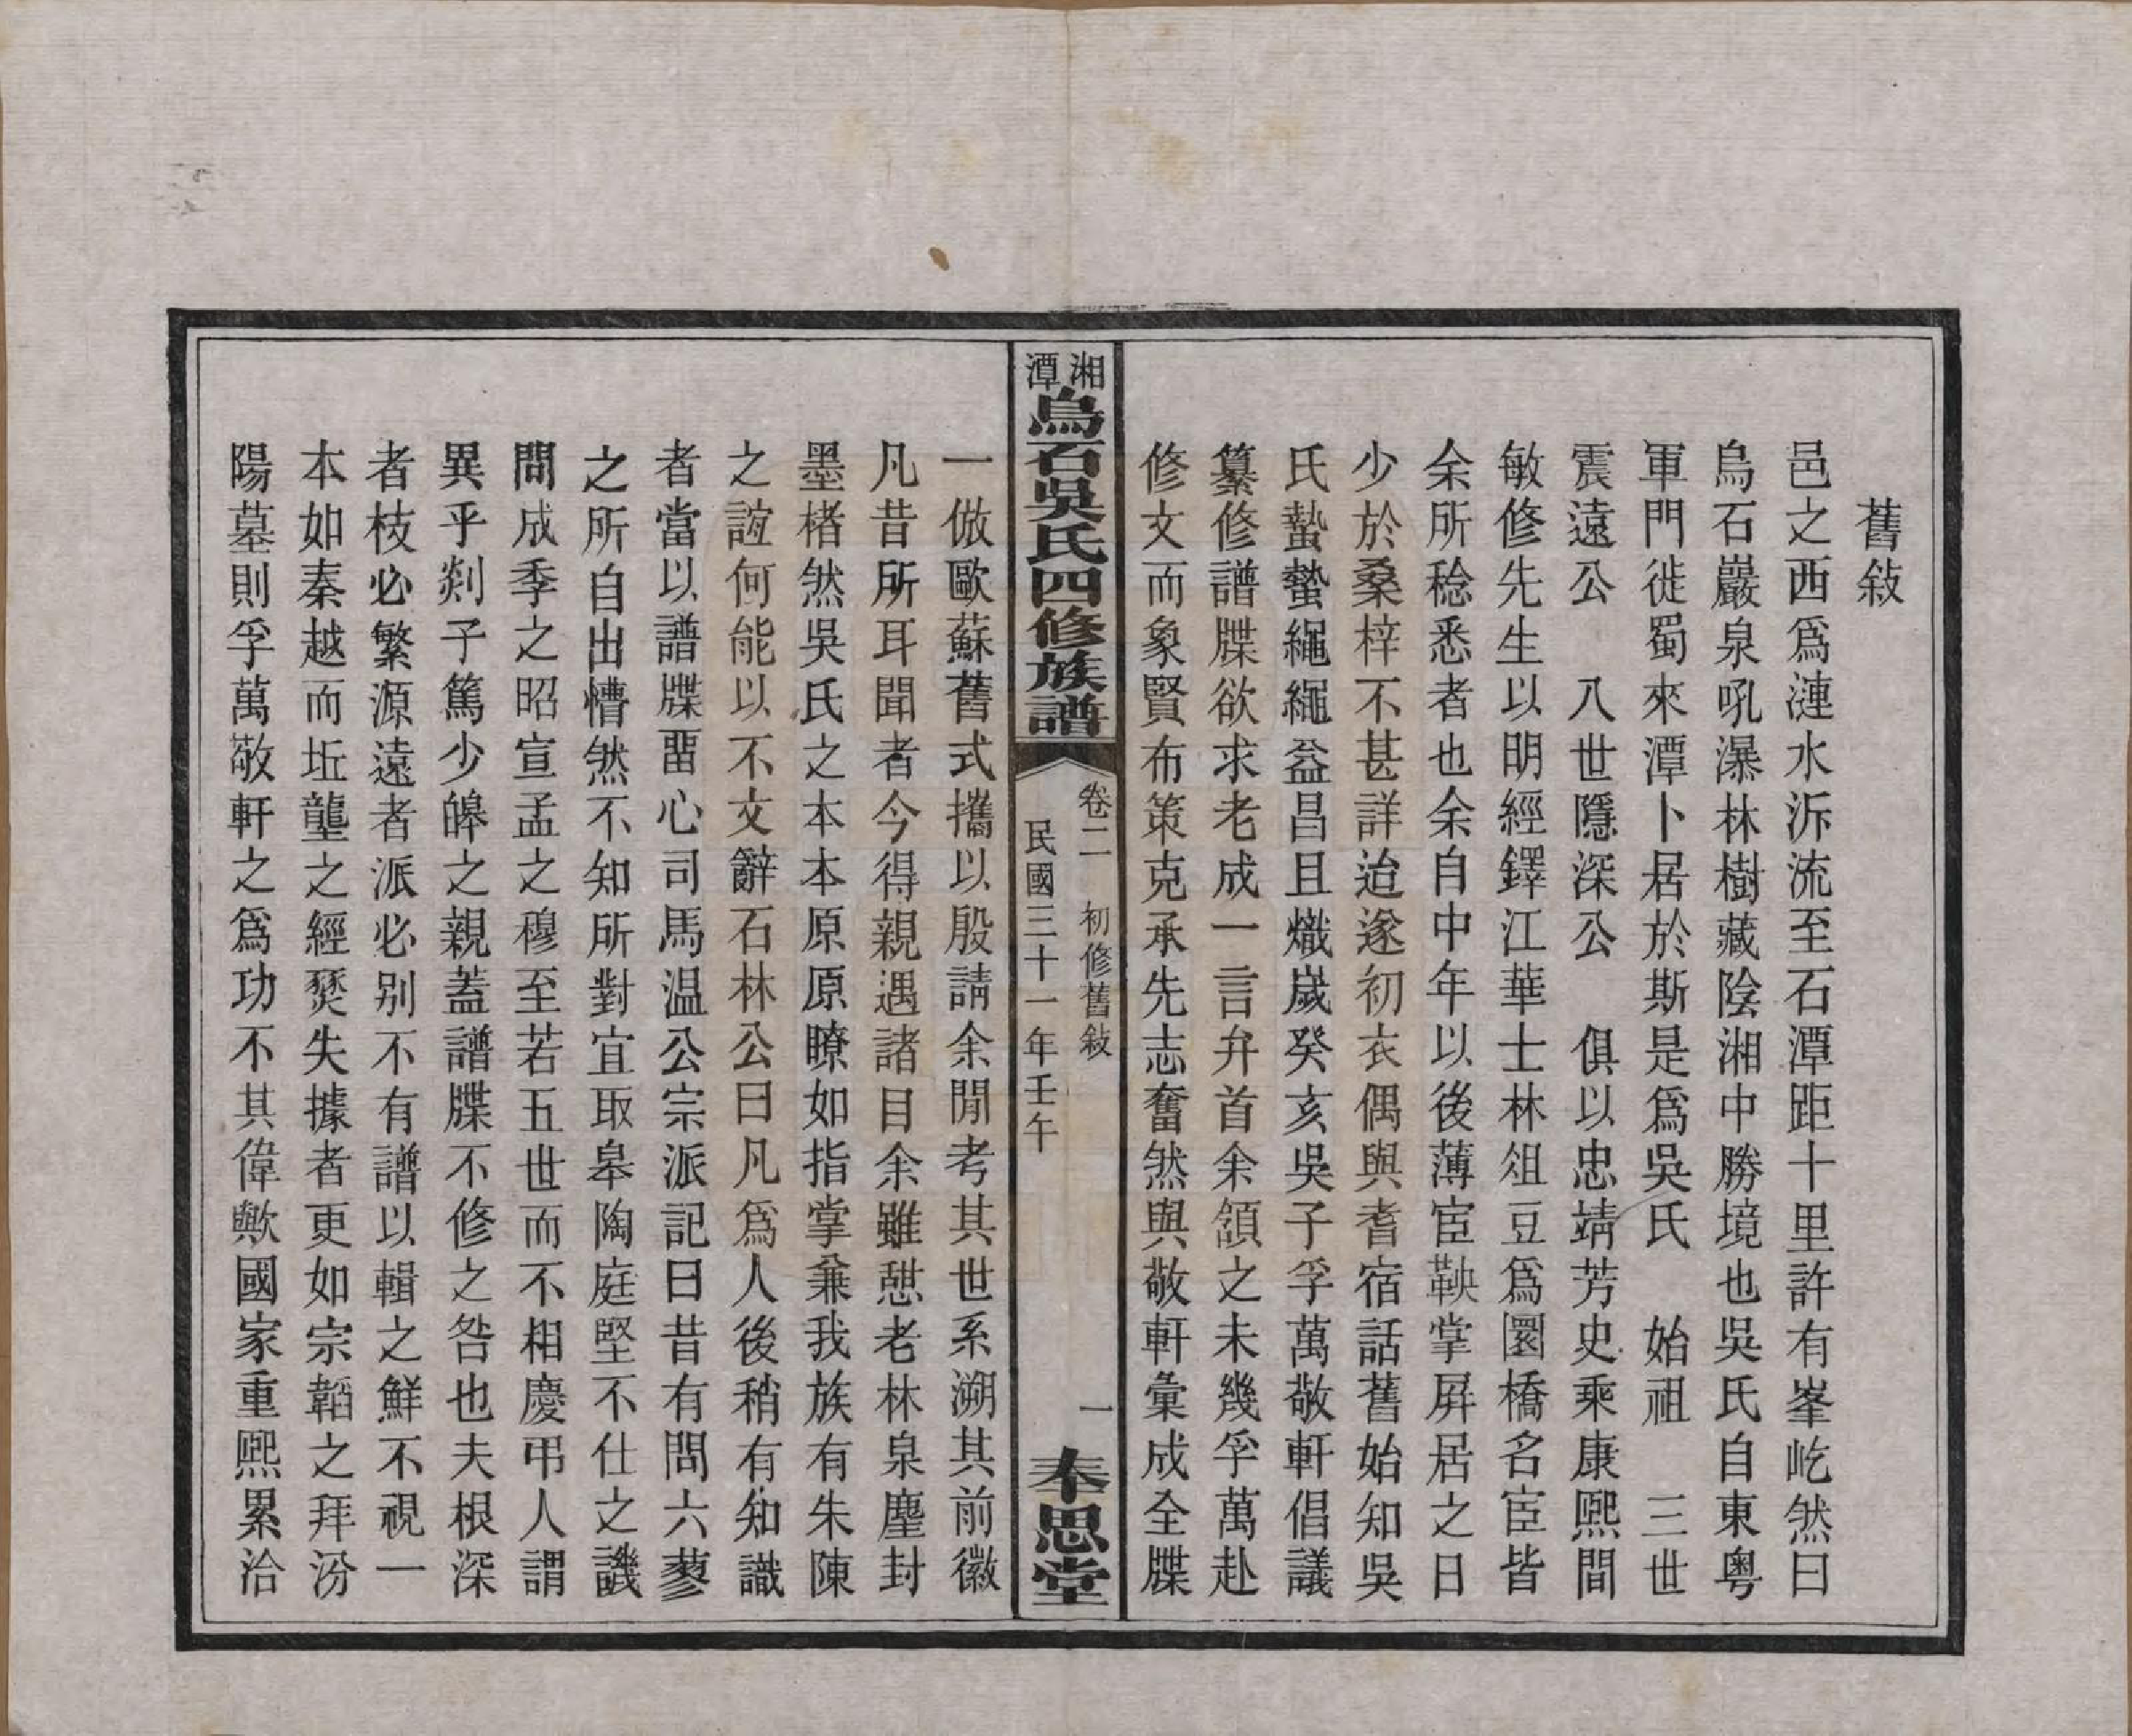 舊敍
邑之西爲漣水泝流至石潭距十里許有峯屹然曰
烏石巖泉吼瀑林樹藏陰湘中勝境也吳氏自東粵
軍門徙蜀來潭卜居於斯是爲吳氏 始祖 三世
震遠公 八世隱深公 俱以忠靖芳史乘康熙間
敏修先生以明經鐸江華士林俎豆爲圜橋名宦皆
余所稔悉者也余自中年以後薄宦鞅掌屏居之日
少於桑梓不甚詳迨遂初衣偶與耆宿話舊始知吳
氏蟄蟄繩繩益昌且熾歲癸亥吳子孚萬敬軒倡議
纂修譜牒欲求老成一言弁首余頷之未幾孚萬赴
修文而象賢布策克承先志奮然與敬軒彙成全牒
湘潭烏石吳氏四修族譜
卷二 初修舊敍 一
民國三十一年壬午
奉思堂
一倣歐蘇舊式攜以殷請余閒考其世系溯其前徽
凡昔所耳聞者今得親遇諸目余雖憇老林泉塵封
墨楮然吳氏之本本原原瞭如指掌兼我族有朱陳
之誼何能以不文辭石林公曰凡爲人後稍有知識
者當以譜牒畱心司馬温公宗派記曰昔有問六蓼
之所自出慒然不知所對宜取皋陶庭堅不仕之譏
問成季之昭宣孟之穆至若五世而不相慶弔人謂
異乎剡子篤少皞之親蓋譜牒不修之咎也夫根深
者枝必繁源遠者派必别不有譜以輯之鮮不視一
本如秦越而坵壟之經燹失據者更如宗韜之拜汾
陽墓則孚萬敬軒之爲功不其偉歟國家重熙累洽